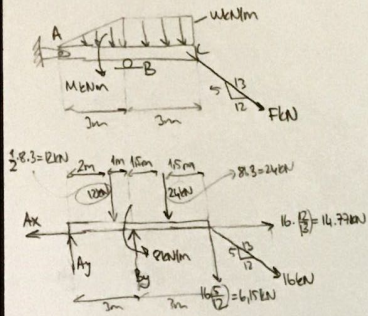 WkN/m
A
B
C
MkNm
5 13
12
FkN
3m 3m
1/2·8·3=12kN
2m 1m 1.5m 1.5m
8·3=24kN
12kN
24kN
Ax
16·(12/13)=14.77kN
Ay
By
8kN/m
5 13
12
16kN
16(5/12)=6,15kN
3m 3m